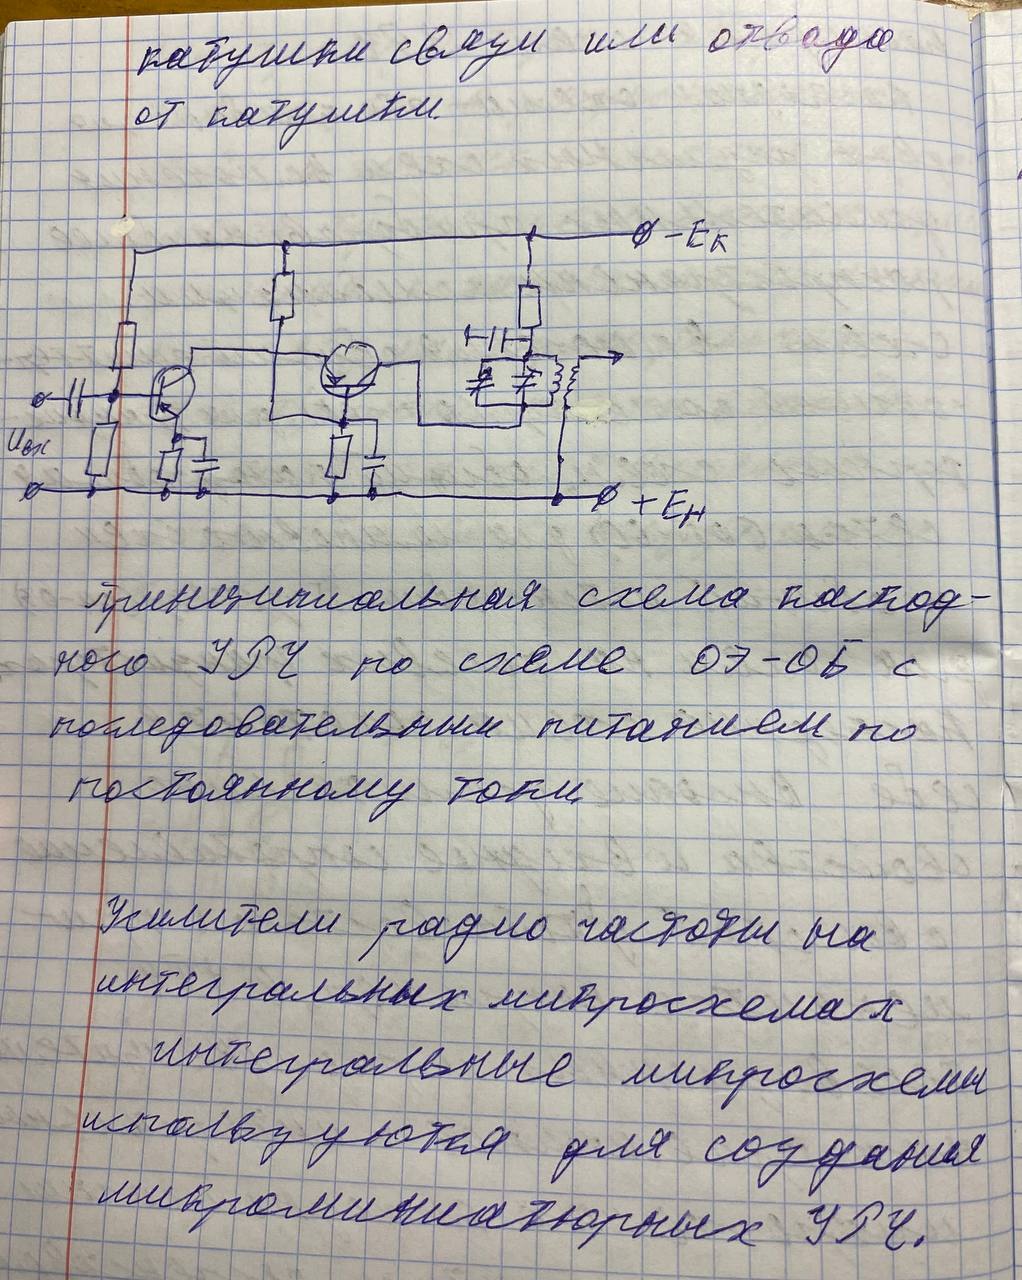 катушки связи или отвода
от катушки.
-Eк
Uвх
+Eн
Принципиальная схема каскод-
ного УРЧ по схеме ОЭ-ОБ с
последовательным питанием по
постоянному току
Усилители радио частоты на
интегральных микросхемах
интегральные микросхемы
используются для создания
микроминиатюрных УРЧ.